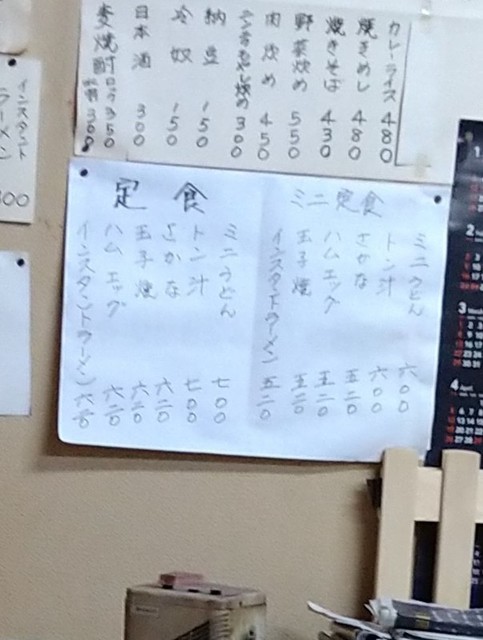 カレーライス 480
焼きめし 480
焼きそば 430
野菜炒め 550
肉炒め 450
300
納豆 150
冷奴 150
日本酒 300
麦焼酎 ロック 350
インスタント
ラーメン
ミニ定食
ミニうどん 六〇〇
トン汁 六〇〇
さかな 五二〇
ハムエッグ 五二〇
玉子焼 五二〇
インスタントラーメン 五二〇
定食
ミニうどん 七〇〇
トン汁 七〇〇
さかな 六二〇
玉子焼 六二〇
ハムエッグ 六二〇
インスタントラーメン 六二〇
1
2
3
4 April